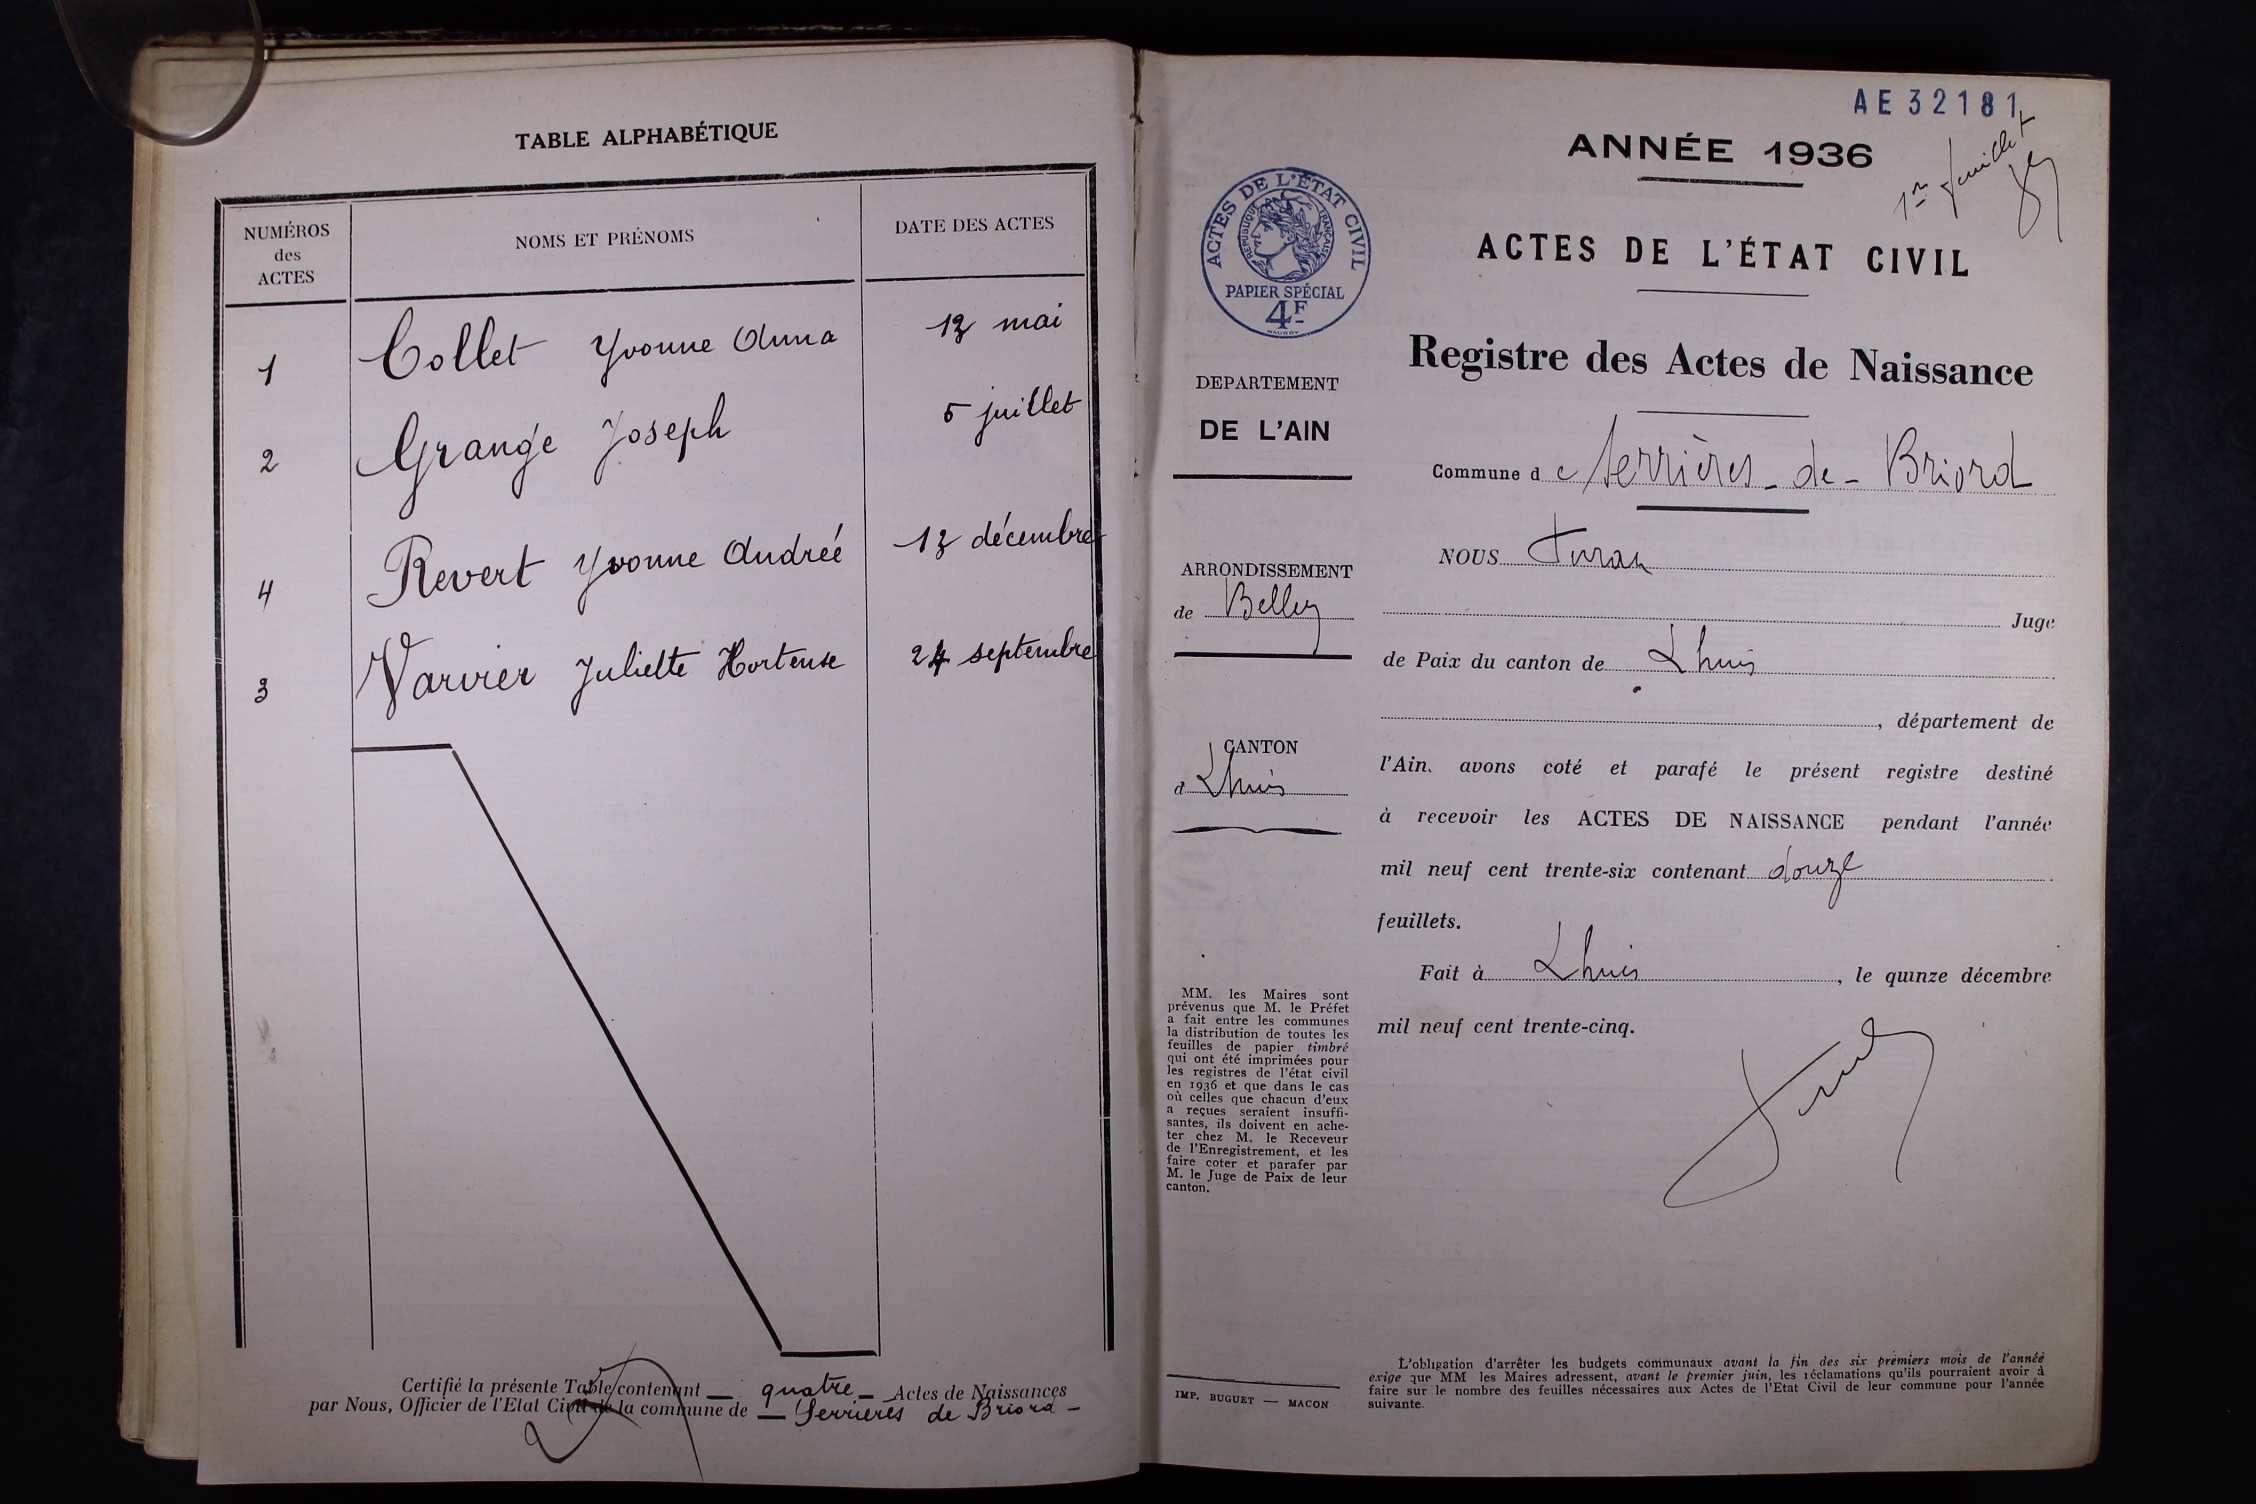 TABLE ALPHABÉTIQUE
NUMÉROS
des
ACTES
NOMS ET PRÉNOMS
DATE DES ACTES
1 Collet Yvonne Anna 13 mai
2 Grange Joseph 5 juillet
4 Revert Yvonne Andréé 13 décembre
3 Varvier Juliette Hortense 24 septembre
Certifié la présente Table contenant quatre Actes de Naissances
par Nous, Officier de l'Etat Civil de la commune de Serrières de Briord
AE 32181
1er feuillet
ANNÉE 1936
ACTES DE L'ÉTAT CIVIL
RÉPUBLIQUE FRANÇAISE
PAPIER SPÉCIAL
4F
ACTES DE L'ÉTAT CIVIL
Registre des Actes de Naissance
DEPARTEMENT
DE L'AIN
ARRONDISSEMENT
de Belley
CANTON
d Lhuis
MM. les Maires sont
prévenus que M. le Préfet
a fait entre les communes
la distribution de toutes les
feuilles de papier timbré
qui ont été imprimées pour
les registres de l'état civil
en 1936 et que dans le cas
où celles que chacun d'eux
a reçues seraient insuffi-
santes, ils doivent en ache-
ter chez M. le Receveur
de l'Enregistrement, et les
faire coter et parafer par
M. le Juge de Paix de leur
canton.
IMP. BUGUET — MACON
Commune de Serrières-de-Briord
NOUS
Juge
de Paix du canton de Lhuis
, département de
l'Ain, avons coté et parafé le présent registre destiné
à recevoir les ACTES DE NAISSANCE pendant l'année
mil neuf cent trente-six contenant douze
feuillets.
Fait à Lhuis, le quinze décembre
mil neuf cent trente-cinq.
L'obligation d'arrêter les budgets communaux avant la fin des six premiers mois de l'année
exige que MM les Maires adressent, avant le premier juin, les réclamations qu'ils pourraient avoir à
faire sur le nombre des feuilles nécessaires aux Actes de l'Etat Civil de leur commune pour l'année
suivante.